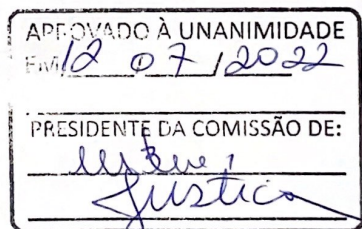 APROVADO À UNANIMIDADE
EM 12 07 / 2022
PRESIDENTE DA COMISSÃO DE:
Justiça